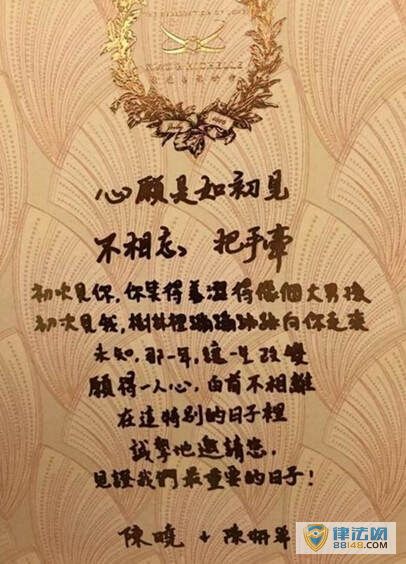 MICHELLE
心願是如初見
不相忘、把手牽
初次見你,你笑得羞澀得像個大男孩
初次見我,樹林裡蹦蹦跳跳向你走來
未知,那一年,這一生改變
願得一人心,白首不相離
在這特別的日子裡
誠摯地邀請您,
見證我們最重要的日子!
陳曉 + 陳妍希
律法网
88148.com